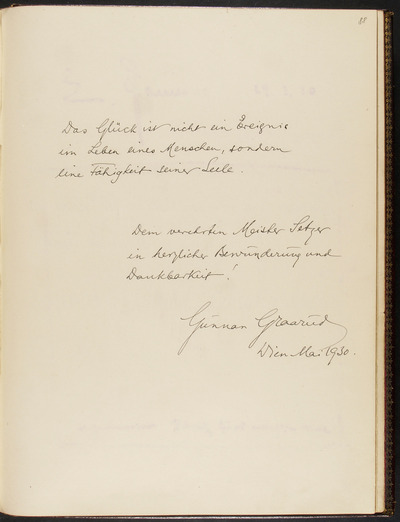 18
Das Glück ist nicht ein Ereignis
im Leben eines Menschen, sondern
eine Fähigkeit seiner Seele.
Dem verehrten Meister Setzer
in herzlicher Bewunderung und
Dankbarkeit!
Gunnar Graarud
Wien Mai 1930.